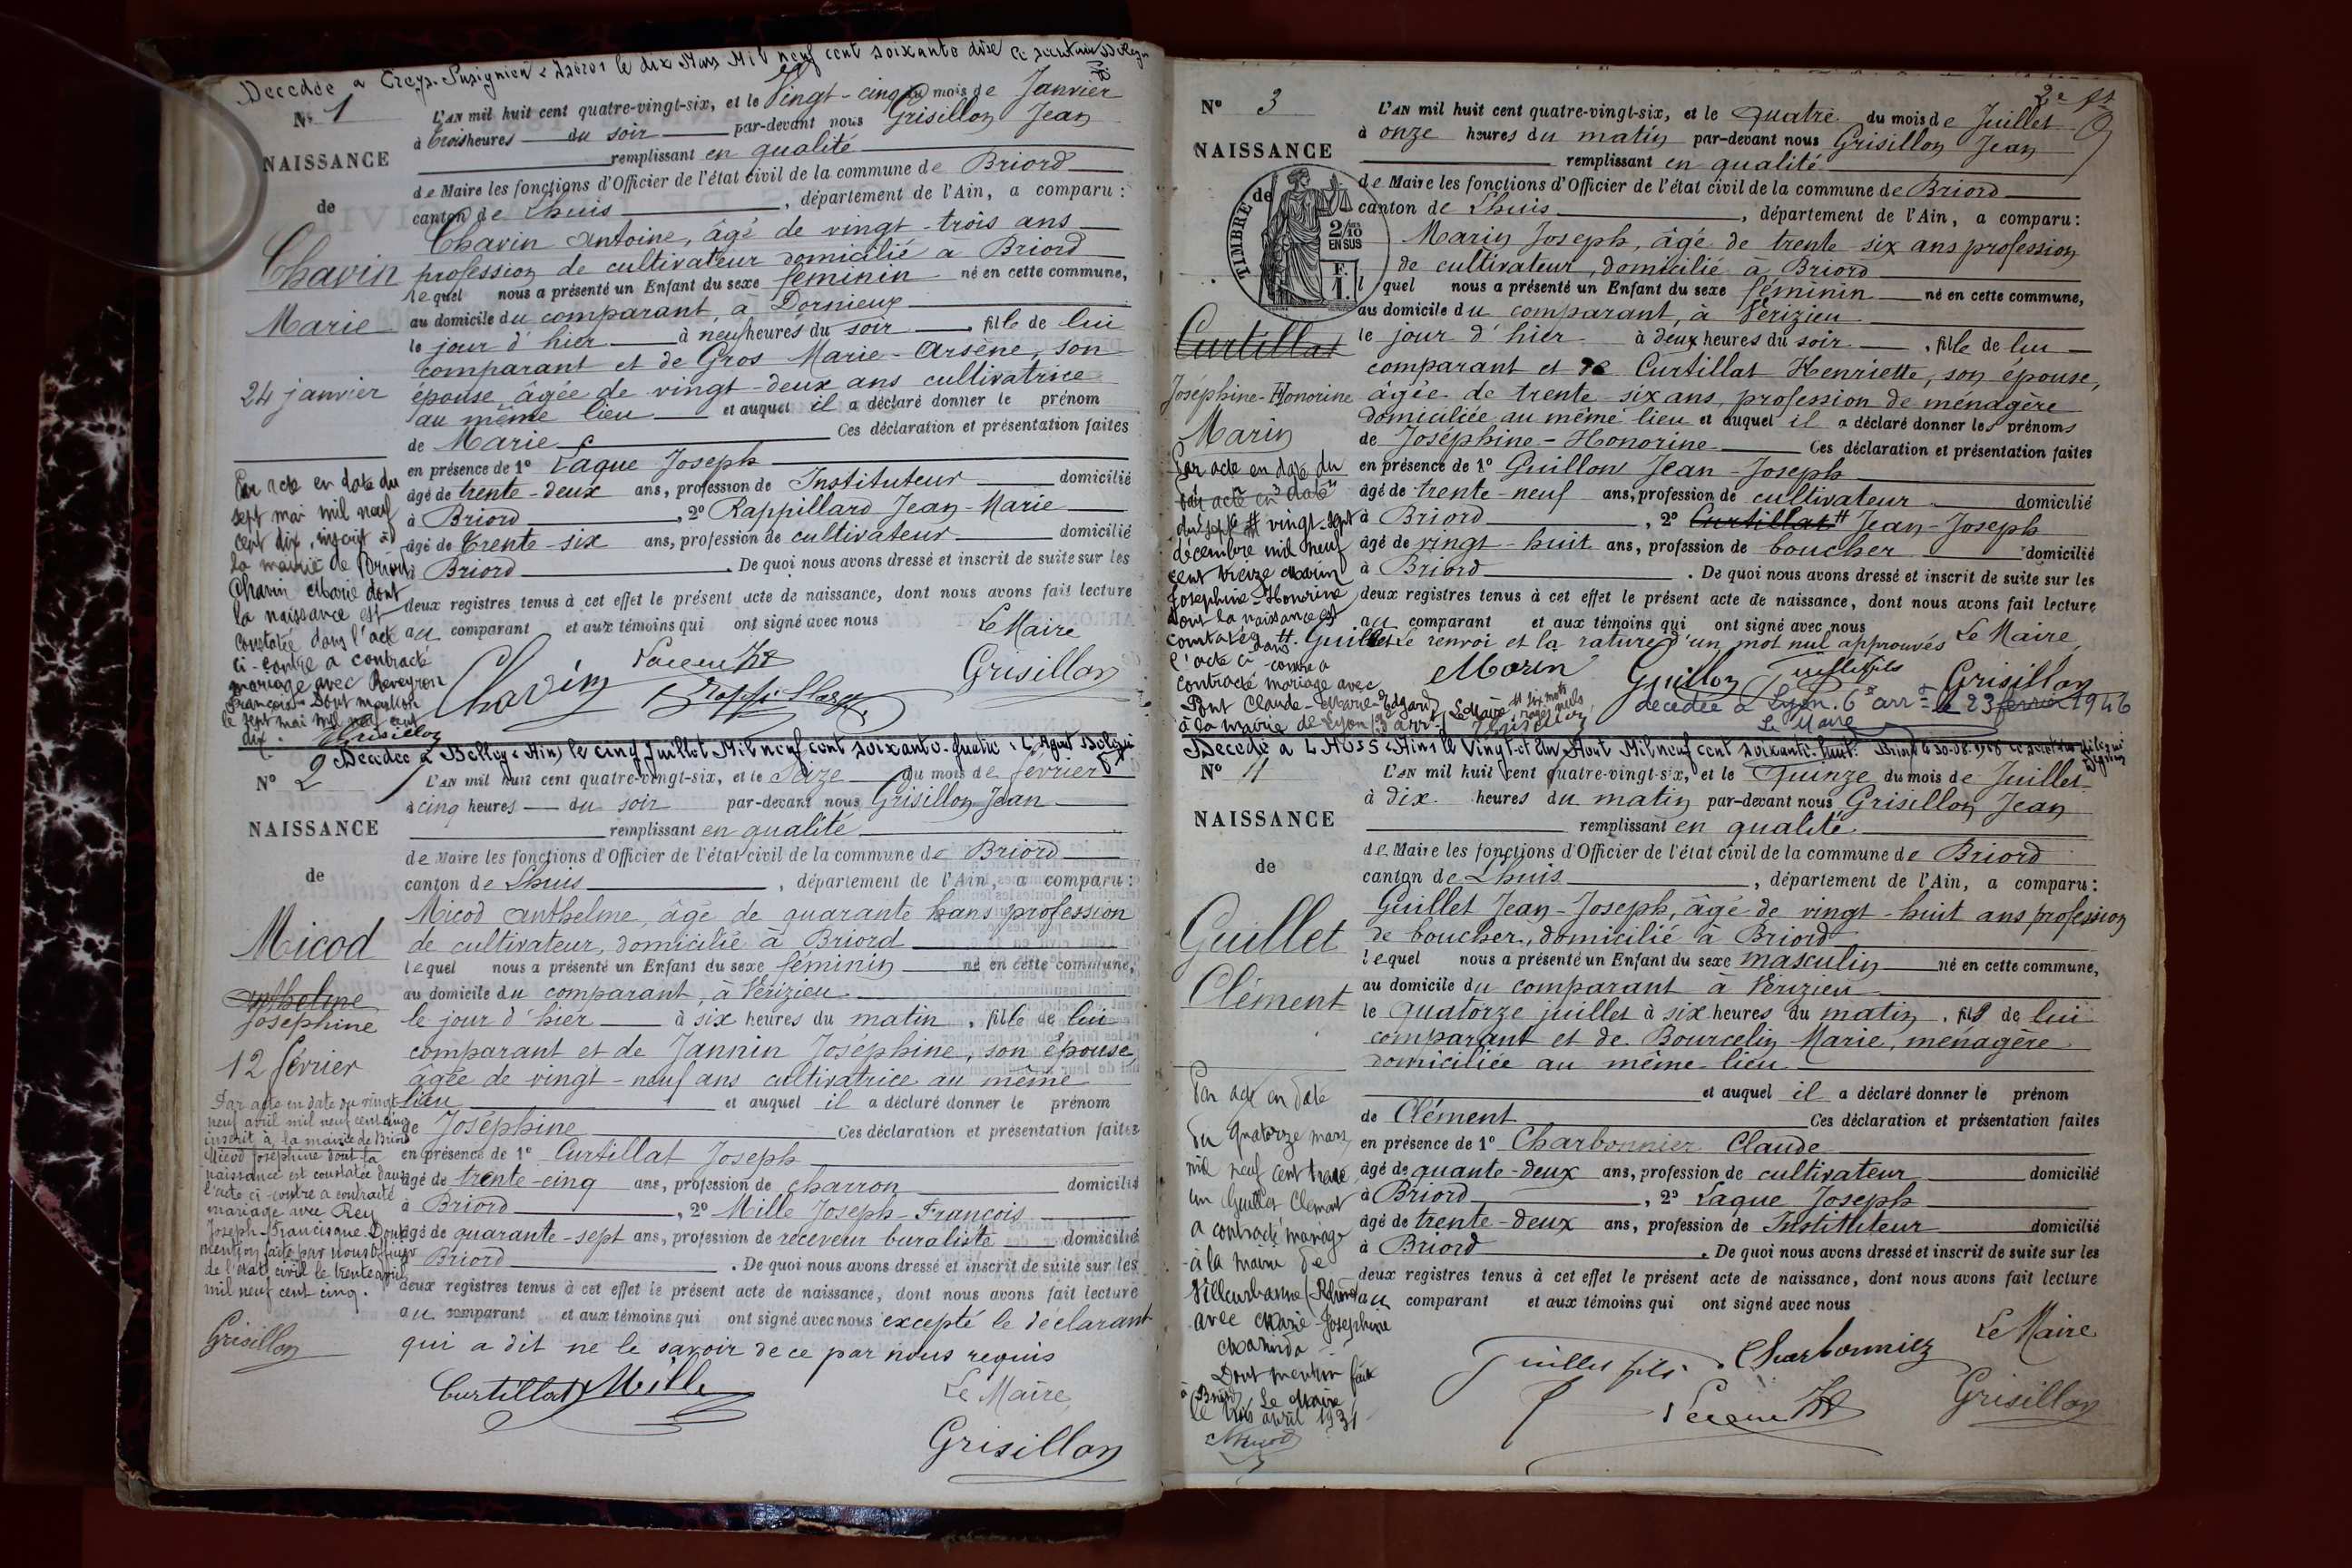 Decedée a Creys-Pusignieu Isère le dix Mars Mil neuf cent soixante dize
N° 1
NAISSANCE
de
Chavin
Marie
24 janvier
Par acte en date du
sept mai mil neuf
cent dix, inscrit à
la mairie de Briord
Chavin Marie dont
la naissance est
constatée dans l'acte
ci-contre a contracté
mariage avec Reveyron
François Dont mention
le sept mai mil neuf cent
dix.
Grisillon
L'AN mil huit cent quatre-vingt-six, et le Vingt-cinq du mois de Janvier
à trois heures du soir par-devant nous Grisillon Jean
remplissant en qualité
de Maire les fonctions d'Officier de l'état civil de la commune de Briord
canton de Lhuis, département de l'Ain, a comparu :
Chavin Antoine, âgé de vingt-trois ans
profession de cultivateur domicilié à Briord
lequel nous a présenté un Enfant du sexe féminin né en cette commune,
au domicile du comparant, à Dornieux
le jour d'hier à neuf heures du soir, fille de lui
comparant et de Gros Marie-Arsène, son
épouse, âgée de vingt-deux ans cultivatrice
au même lieu et auquel il a déclaré donner le prénom
de Marie Ces déclaration et présentation faites
en présence de 1° Laque Joseph
âgé de trente-deux ans, profession de Instituteur domicilié
à Briord, 2° Rappillard Jean-Marie
âgé de trente-six ans, profession de cultivateur domicilié
à Briord. De quoi nous avons dressé et inscrit de suite sur les
deux registres tenus à cet effet le présent acte de naissance, dont nous avons fait lecture
au comparant et aux témoins qui ont signé avec nous
Le Maire
Chavin Grisillon
Decedée a Belley (Ain) le cinq Juillet Mil neuf cent soixante-quatre. L'Agent
N° 2
NAISSANCE
de
Micod
Anthelme
Joséphine
12 février
Par acte en date du vingt
neuf avril mil neuf cent cinq
inscrit à la mairie de Briord
Micod Joséphine dont la
naissance est constatée dans
l'acte ci-contre a contracté
mariage avec Rey
Joseph-Francisque. Dont
mention faite par nous Officier
de l'état civil le trente avril
mil neuf cent cinq.
Grisillon
L'AN mil huit cent quatre-vingt-six, et le Seize du mois de février
à cinq heures du soir par-devant nous Grisillon Jean
remplissant en qualité
de Maire les fonctions d'Officier de l'état civil de la commune de Briord
canton de Lhuis, département de l'Ain, a comparu :
Micod Anthelme, âgé de quarante ans profession
de cultivateur, domicilié à Briord
lequel nous a présenté un Enfant du sexe féminin né en cette commune,
au domicile du comparant, à Vérizieu
le jour d'hier à six heures du matin, fille de lui
comparant et de Jannin Joséphine, son épouse,
âgée de vingt-neuf ans cultivatrice au même
lieu et auquel il a déclaré donner le prénom
de Joséphine Ces déclaration et présentation faites
en présence de 1° Curtillat Joseph
âgé de trente-cinq ans, profession de charron domicilié
à Briord, 2° Mille Joseph-François
âgé de quarante-sept ans, profession de receveur buraliste domicilié
à Briord. De quoi nous avons dressé et inscrit de suite sur les
deux registres tenus à cet effet le présent acte de naissance, dont nous avons fait lecture
au comparant et aux témoins qui ont signé avec nous excepté le déclarant
qui a dit ne le savoir de ce par nous requis
Curtillat Mille Le Maire,
Grisillon
2e
N° 3
NAISSANCE
de
TIMBRE
2/10 EN SUS
F. 1.
Curtillat
Joséphine-Honorine
Marin
Par acte en date du
Par acte en date
vingt-sept
décembre mil neuf
cent treize Marin
Joséphine-Honorine
dont la naissance est
constatée dans
l'acte ci-contre a
contracté mariage avec
Pont Claude-Marie-Edgard
à la mairie de Lyon
Le Maire
L'AN mil huit cent quatre-vingt-six, et le Quatre du mois de Juillet
à onze heures du matin par-devant nous Grisillon Jean
remplissant en qualité
de Maire les fonctions d'Officier de l'état civil de la commune de Briord
canton de Lhuis, département de l'Ain, a comparu :
Marin Joseph, âgé de trente-six ans profession
de cultivateur, domicilié à Briord
l quel nous a présenté un Enfant du sexe féminin né en cette commune,
au domicile du comparant, à Vérizieu
le jour d'hier à deux heures du soir, fille de lui
comparant et de Curtillat Henriette, son épouse,
âgée de trente-six ans, profession de ménagère
domiciliée au même lieu et auquel il a déclaré donner les prénoms
de Joséphine-Honorine Ces déclaration et présentation faites
en présence de 1° Guillon Jean-Joseph
âgé de trente-neuf ans, profession de cultivateur domicilié
à Briord, 2° Curtillat # Jean-Joseph
âgé de vingt-huit ans, profession de boucher domicilié
à Briord. De quoi nous avons dressé et inscrit de suite sur les
deux registres tenus à cet effet le présent acte de naissance, dont nous avons fait lecture
au comparant et aux témoins qui ont signé avec nous
# Guillet le renvoi et la rature d'un mot nul approuvés Le Maire,
Marin Guillon Guillet fils Grisillon
décédée à Lyon. 6e arrt le 23 février 1946
Le Maire
Decedé a LHuis (Ain) le Vingt et Un Aout Mil neuf cent soixante-huit. Briord
N° 4
NAISSANCE
de
Guillet
Clément
Par acte en date
du quatorze mars
mil neuf cent trente
un Guillet Clément
a contracté mariage
à la mairie de
Villeurbanne (Rhône)
avec Marie-Joséphine
Dont mention faite
à Briord, Le Maire
le trois avril 1931
L'AN mil huit cent quatre-vingt-six, et le Quinze du mois de Juillet
à dix heures du matin par-devant nous Grisillon Jean
remplissant en qualité
de Maire les fonctions d'Officier de l'état civil de la commune de Briord
canton de Lhuis, département de l'Ain, a comparu :
Guillet Jean-Joseph, âgé de vingt-huit ans profession
de boucher, domicilié à Briord
lequel nous a présenté un Enfant du sexe masculin né en cette commune,
au domicile du comparant à Vérizieu
le quatorze juillet à six heures du matin, fils de lui
comparant et de Bourcelin Marie, ménagère
domiciliée au même lieu
et auquel il a déclaré donner le prénom
de Clément Ces déclaration et présentation faites
en présence de 1° Charbonnier Claude
âgé de quante-deux ans, profession de cultivateur domicilié
à Briord, 2° Laque Joseph
âgé de trente-deux ans, profession de Instituteur domicilié
à Briord. De quoi nous avons dressé et inscrit de suite sur les
deux registres tenus à cet effet le présent acte de naissance, dont nous avons fait lecture
au comparant et aux témoins qui ont signé avec nous
Le Maire
Guillet fils. Charbonnier
Grisillon